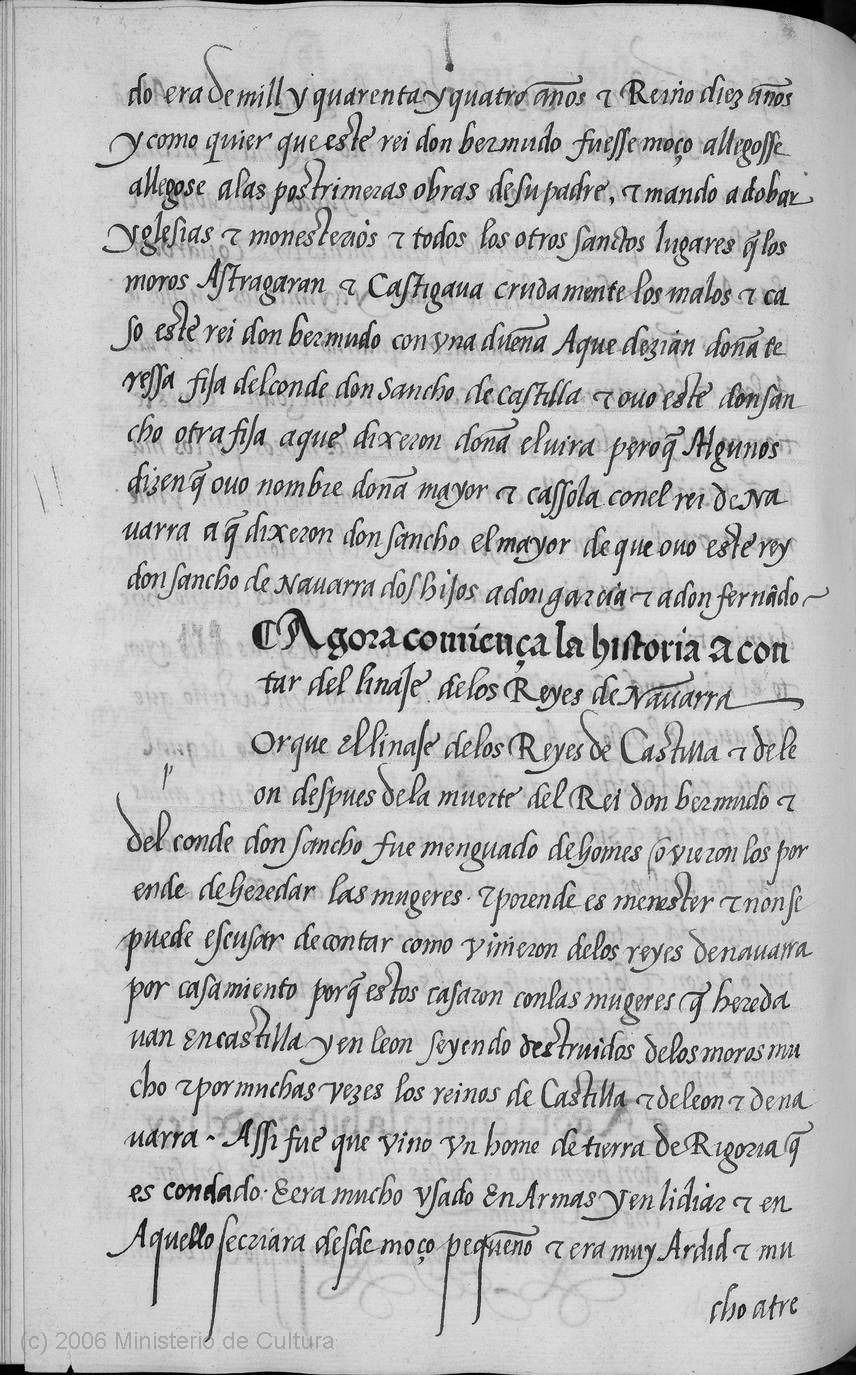 do era de mill y quarenta y quatro años ⁊ Reino diez años
y como quier que este rei don bermudo fuesse moço allegosse
allegose a las postrimeras obras de su padre, ⁊ mando adobar
yglesias ⁊ monesterios ⁊ todos los otros sanctos lugares q̃ los
moros Astragaran ⁊ Castigaua cruda mente los malos ⁊ ca
so este rei don bermudo con vna dueña Aque dezian doña te
ressa fija del conde don sancho de castilla ⁊ ouo este don san
cho otra fija a que dixeron doña eluira pero q̃ Algunos
dizen q̃ ouo nombre doña mayor ⁊ cassola con el rei de Na
uarra a q̃ dixeron don sancho el mayor de que ouo este rey
don sancho de Nauarra dos hijos a don garcia ⁊ a don fernãdo
¶ Agora comiença la historia a con
tar del linaje de los Reyes de Nauarra
p
Orque el linaje de los Reyes de Castilla ⁊ de le
on despues de la muerte del Rei don bermudo ⁊
del conde don sancho fue menguado de homes ovieron los por
ende de heredar las mugeres. ⁊ por ende es menester ⁊ non se
puede escusar de contar como vinieron de los reyes de nauarra
por casamiento porq̃ estos casaron con las mugeres q̃ hereda
uan En castilla y en leon seyendo destruidos de los moros mu
cho ⁊ por muchas vezes los reinos de Castilla ⁊ de leon ⁊ de na
uarra - Assi fue que vino vn home de tierra de Rigoria q̃
es condado. E era mucho vsado En Armas y en lidiar ⁊ en
Aquello se criara desde moço pequeño ⁊ era muy Ardid ⁊ mu
cho atre
(c) 2006 Ministerio de Cultura